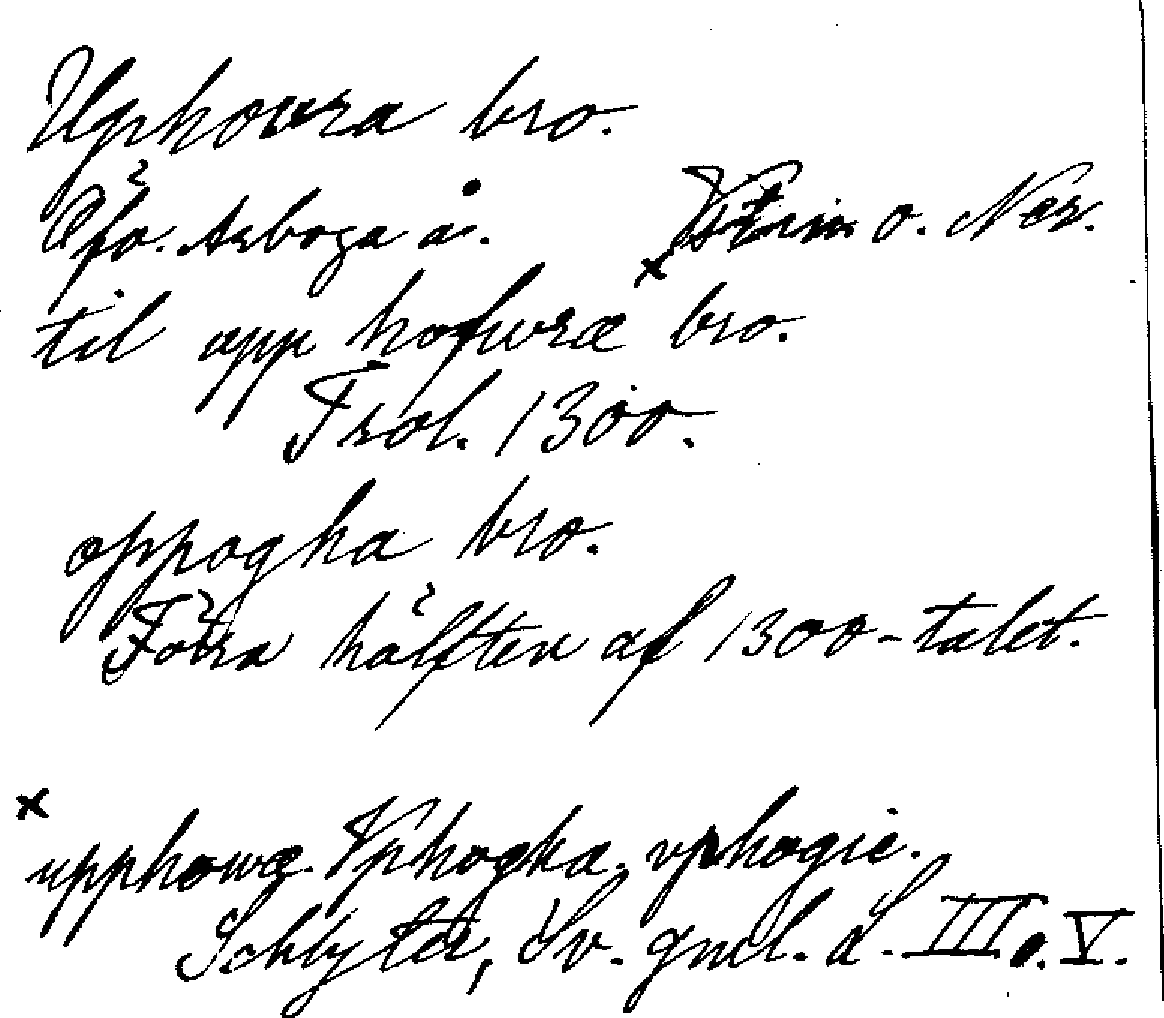 Uphowra bro.
Öfv. Arboga å. Vstm o. Ner.
til upp hofwræ bro.
Trol. 1300.
oppogha bro.
Förra hälften af 1300-talet.
x
upphowæ. Vphogha, vphogie.
Schlyter, Sv. gml. L. III o. V.